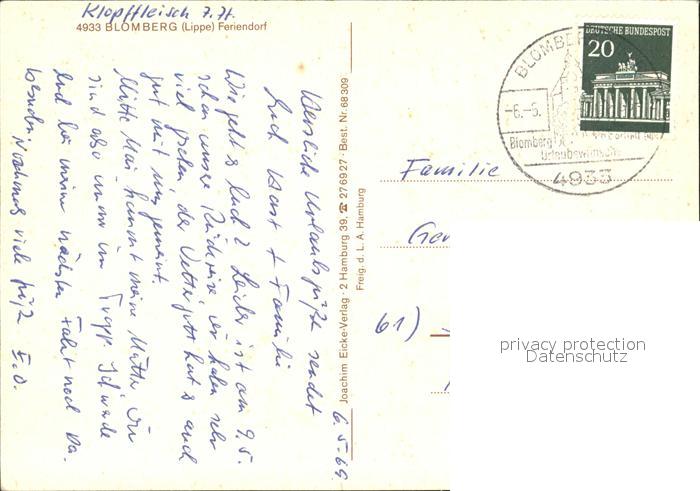 Klopffleisch z. Zt.
4933 BLOMBERG (Lippe) Feriendorf
6.5.69
Herzliche Urlaubsgrüße sendet
Euch Horst + Familie
Wie geht's Euch? Leider ist am 9.5.
schon unsere Rückreise wir haben sehr
viel gesehen der Wettergott hat's auch
gut mit uns gemeint.
Mitte Mai kommt meine Mutter wir
sind also immer im Trapp. Ich werde
Euch bei meiner nächsten Fahrt nach Da.
besuchen nochmals viele Grüße
Joachim Eicke-Verlag · 2 Hamburg 39, ☎ 276927 · Best. Nr. 68309
Freig. d. L. A. Hamburg
DEUTSCHE BUNDESPOST
20
BLOMBERG
-6.-5.
Blomberg
Urlaubswünsche
4933
Familie
61)
privacy protection
Datenschutz